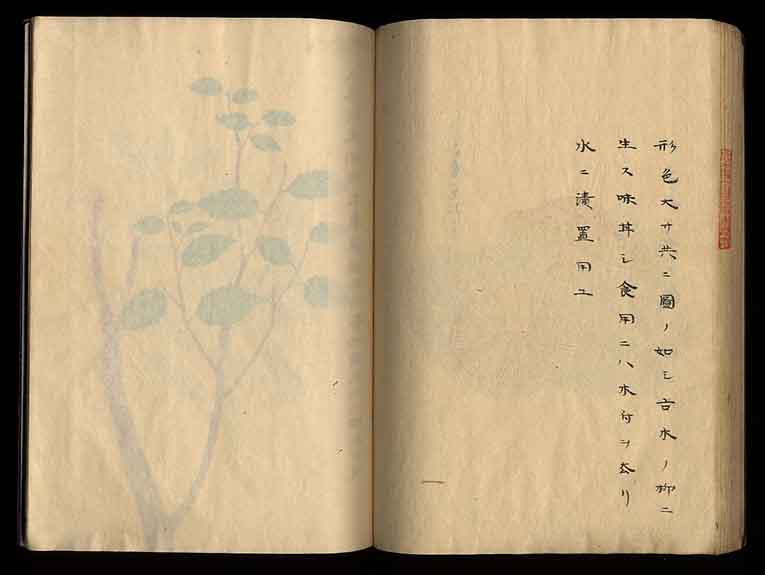 形色大サ共ニ圖ノ如シ古木ノ柳ニ
生ス味甘シ食用ニハ木付ヲ去リ
水ニ漬置用ユ